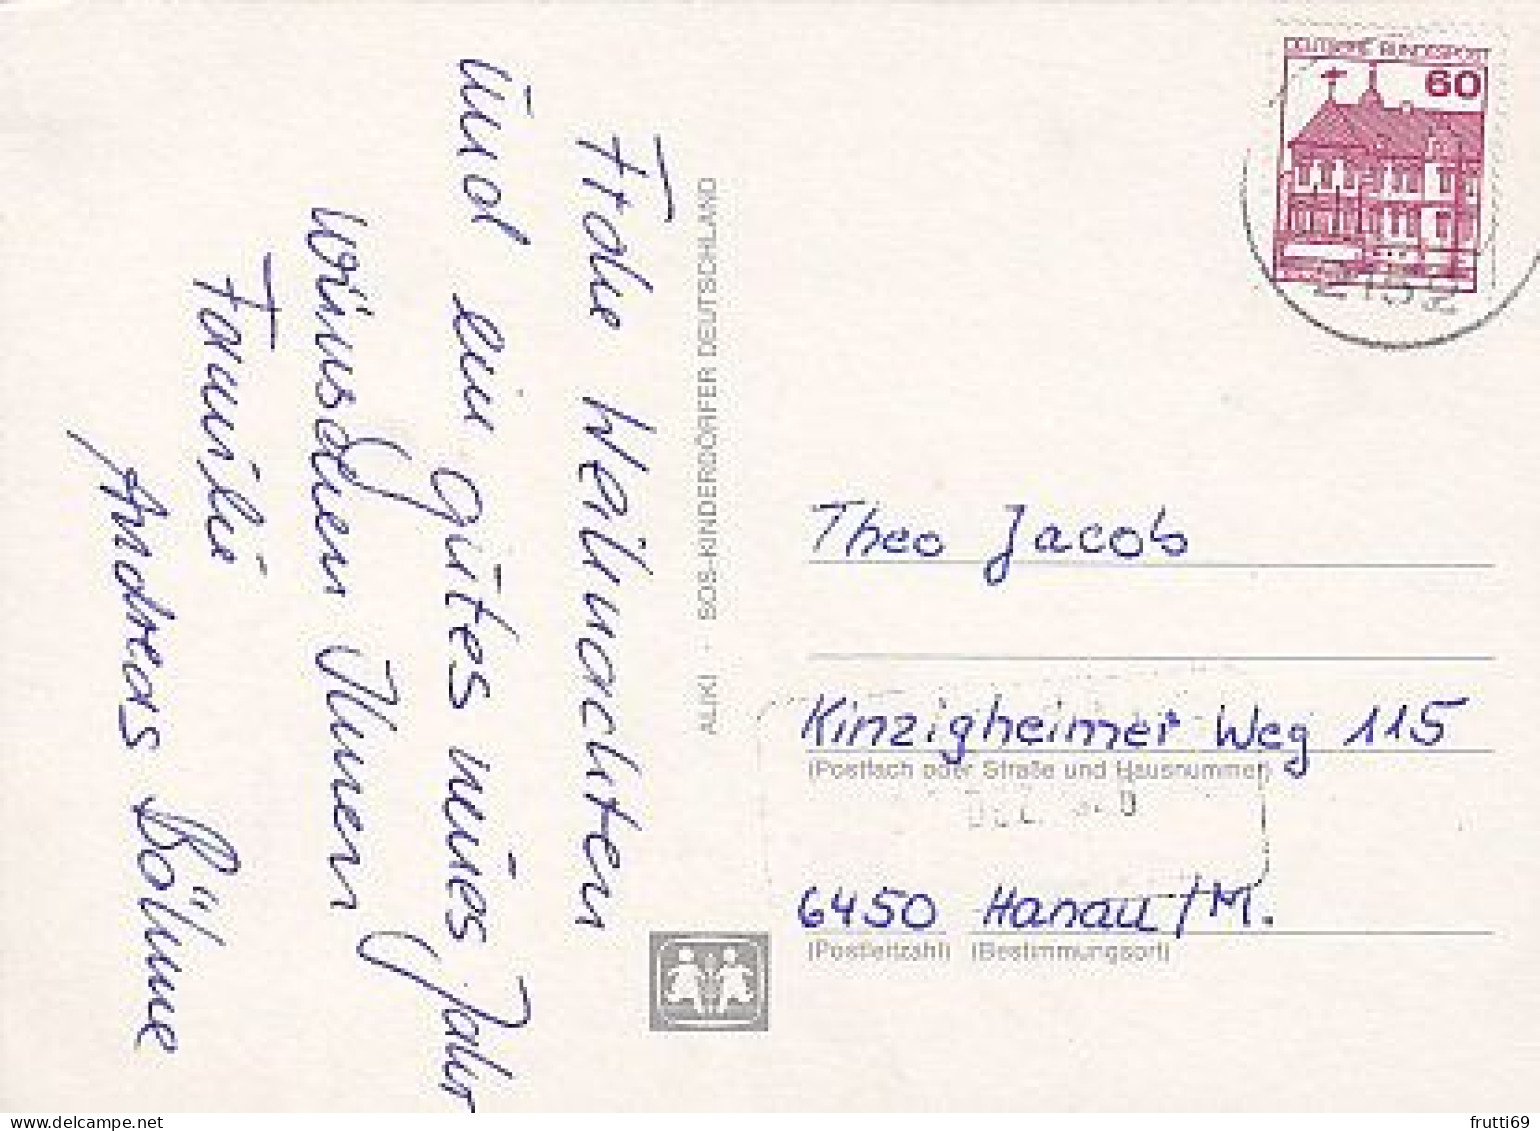 Frohe Weihnachten
und ein gutes neues Jahr
wünschen Ihnen
Familie
Andreas Böhme
ALIKI · SOS-KINDERDÖRFER DEUTSCHLAND
DEUTSCHE BUNDESPOST
60
Theo Jacob
Kinzigheimer Weg 115
(Postfach oder Straße und Hausnummer)
6450 Hanau/M.
(Postleitzahl) (Bestimmungsort)
delcampe.net
frutti69